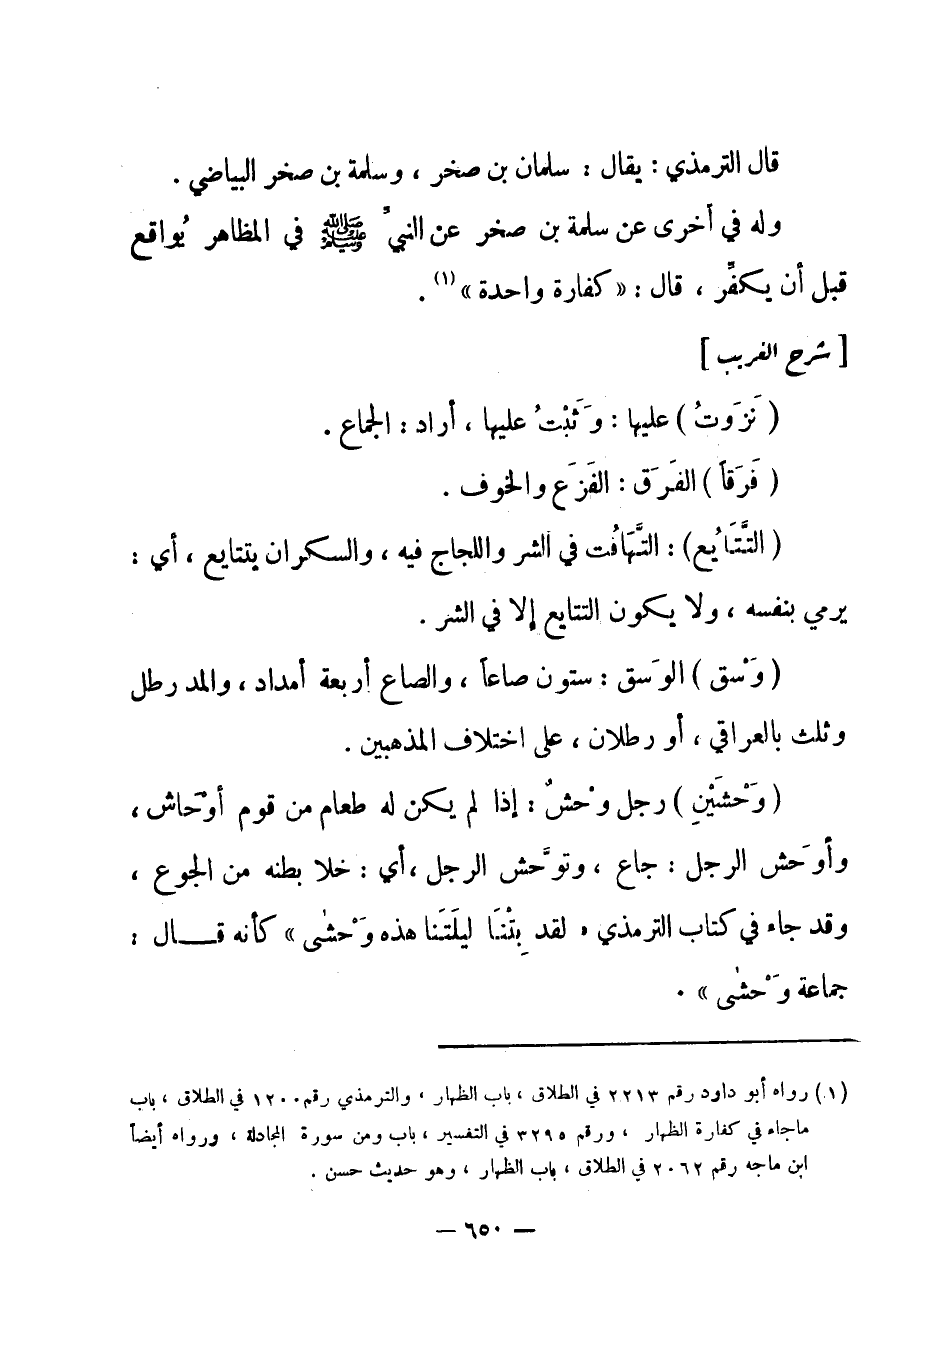 قال الترمذي : يقال : سلمان بن صخر ، وسلمة بن صخر البياضي .
وله في أخرى عن سلمة بن صخر عن النبيِّ ﷺ في المظاهر يُواقع
قبل أن يكفِّر ، قال : « كفارة واحدة »(١) .
[ شرح الغريب ]
( نَزَوتُ ) عليها : وَثَبْتُ عليها ، أراد : الجماع .
( فَرَقاً ) الفَرَق : الفَزَع والخوف .
( التَّتَايُع ) : التَّهَافُت في الشر واللجاج فيه ، والسكران يتتايع ، أي :
يرمي بنفسه ، ولا يكون التتايع إلا في الشر .
( وَسْق ) الوَسق : ستون صاعاً ، والصاع أربعة أمداد ، والمد رطل
وثلث بالعراقي ، أو رطلان ، على اختلاف المذهبين .
( وَحْشَيْنِ ) رجل وحْشٌ : إذا لم يكن له طعام من قوم أوْحاش ،
وأوحَش الرجل : جاع ، وتوحَّش الرجل ، أي : خلا بطنه من الجوع ،
وقد جاء في كتاب الترمذي « لقد بِتْنَا ليلَتَنا هذه وَحْشَى » كأنه قـــال :
جماعة وَحْشَى » .
(١) رواه أبو داود رقم ٢٢١٣ في الطلاق ، باب الظهار ، والترمذي رقم ١٢٠٠ في الطلاق ، باب
ماجاء في كفارة الظهار ، ورقم ٣٢٩٥ في التفسير ، باب ومن سورة المجادلة ، ورواه أيضاً
ابن ماجه رقم ٢٠٦٢ في الطلاق ، باب الظهار ، وهو حديث حسن .
— ٦٥٠ —